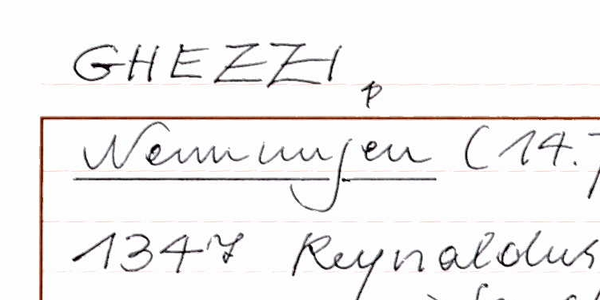 GHEZZI p
Nennungen (14.
1347 Reynaldus